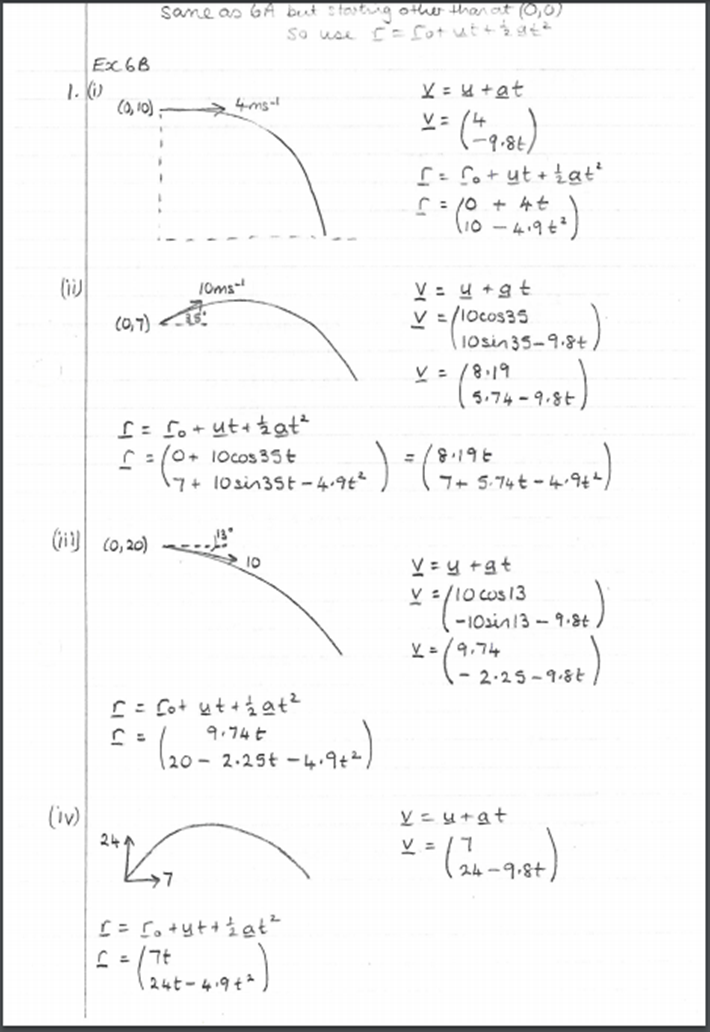 same as 6A but starting other than at (0,0)
so use r = r₀ + ut + ½at²
Ex 6B
1. (i)
(0,10)
4ms⁻¹
v = u + at
v = (4
-9.8t)
r = r₀ + ut + ½at²
r = (0 + 4t
10 - 4.9t²)
(ii)
10ms⁻¹
(0,7)
35°
v = u + at
v = (10cos35
10sin35-9.8t)
v = (8.19
5.74-9.8t)
r = r₀ + ut + ½at²
r = (0+ 10cos35t
7+ 10sin35t-4.9t²) = (8.19t
7+ 5.74t-4.9t²)
(iii)
(0,20)
13°
10
v = u + at
v = (10cos13
-10sin13-9.8t)
v = (9.74
- 2.25-9.8t)
r = r₀+ ut + ½at²
r = (9.74t
20 - 2.25t - 4.9t²)
(iv)
24
7
v = u + at
v = (7
24-9.8t)
r = r₀ + ut + ½at²
r = (7t
24t-4.9t²)